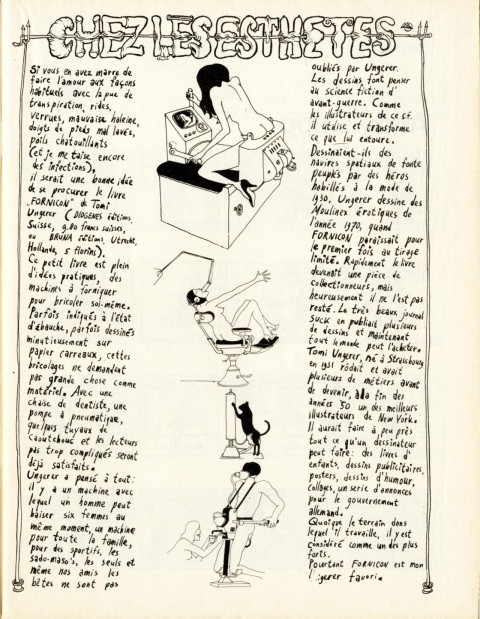 CHEZ LES ESTHETES
Si vous en avez marre de
faire l'amour aux façons
habituels avec la pue de
transpiration, rides,
verrues, mauvaise haleine,
doigts de pieds mal lavés,
poils chatouillants
(et je me taise encore
des infections),
il serait une bonne idée
de se procurer le livre
"FORNICON" de Tomi
Ungerer (DIOGENES éditions,
Suisse, 9.80 francs suisses,
ou BRUNA éditions, Utrecht,
Hollande, 5 florins).
Ce petit livre est plein
d'idées pratiques, des
machines à forniquer
pour bricoler soi-même.
Parfois indiqués à l'état
d'ébauche, parfois dessinés
minutieusement sur
papier carreaux, cettes
bricolages ne demandent
pas grande chose comme
matériel. Avec une
chaise de dentiste, une
pompe à pneumatique,
quelques tuyaux de
caoutchouc et les lecteurs
pas trop compliqués seront
déjà satisfaits.
Ungerer a pensé à tout:
il y a un machine avec
lequel un homme peut
baiser six femmes au
même moment, un machine
pour toute la famille,
pour des sportifs, les
sado-maso's, les seuls et
même nos amis les
bêtes ne sont pas
oubliés par Ungerer.
Les dessins font penser
au science fiction d'
avant-guerre. Comme
les illustrateurs de ce sf.
il utilise et transforme
ce que lui entoure.
Dessinaient-ils des
navires spatiaux de fonte
peuplés par des héros
habillés à la mode de
1930, Ungerer dessine des
Moulinex érotiques de
l'année 1970, quand
FORNICON paraissait pour
le premier fois au tirage
limité. Rapidement le livre
devenait une pièce de
collectionneurs, mais
heureusement il ne l'est pas
resté. Le très beaux journal
SUCK en publiait plusieurs
de dessins et maintenant
tout le monde peut l'acheter.
Tomi Ungerer, né à Strasbourg
en 1931 rôdait et avait
plusieurs de métiers avant
de devenir, à la fin des
années 50 un des meilleurs
illustrateurs de New York.
Il aurait faire à peu près
tout ce qu'un dessinateur
peut faire: des livres d'
enfants, dessins publicitaires,
posters, dessins d'humour,
collages, un serie d'annonces
pour le gouvernement
allemand.
Quoique le terrain dans
lequel il travaille, il y est
considéré comme un des plus
forts.
Pourtant FORNICON est mon
gerer favori.